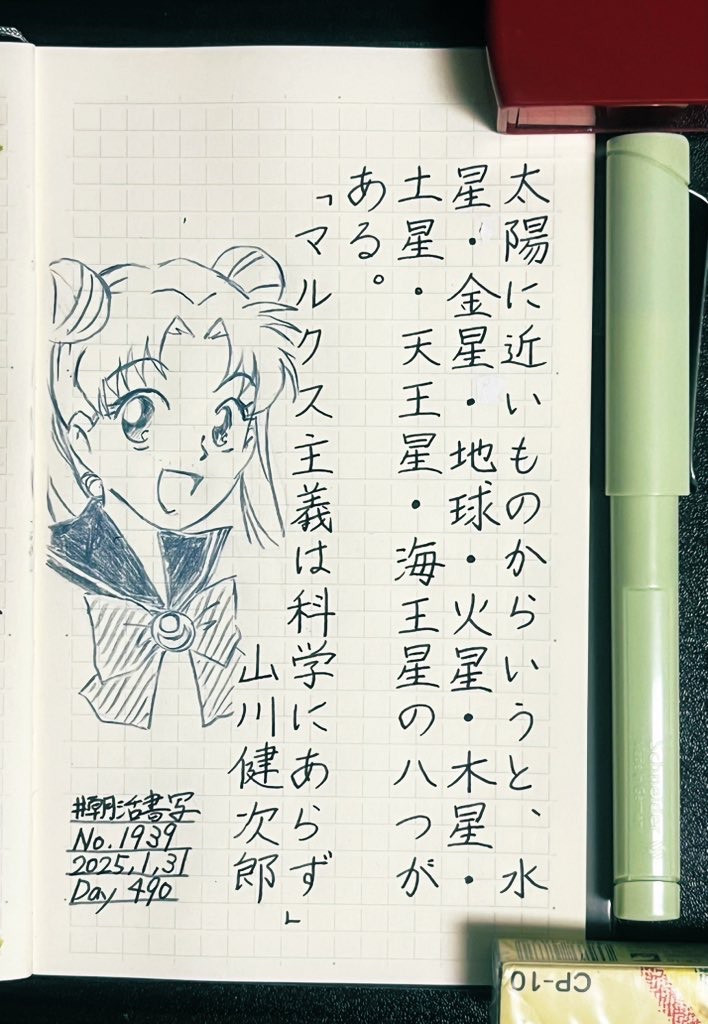 太陽に近いものからいうと、水
星・金星・地球・火星・木星・
土星・天王星・海王星の八つが
ある。
「マルクス主義は科学にあらず」
山川健次郎
#朝活書写
No.1939
2025,1,31
Day 490
Schneider
CP-10